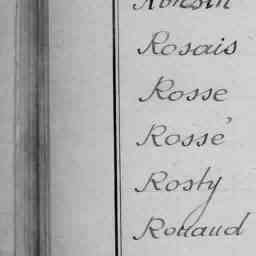 Rosais
Rosse
Rossé
Rosty
Rouaud